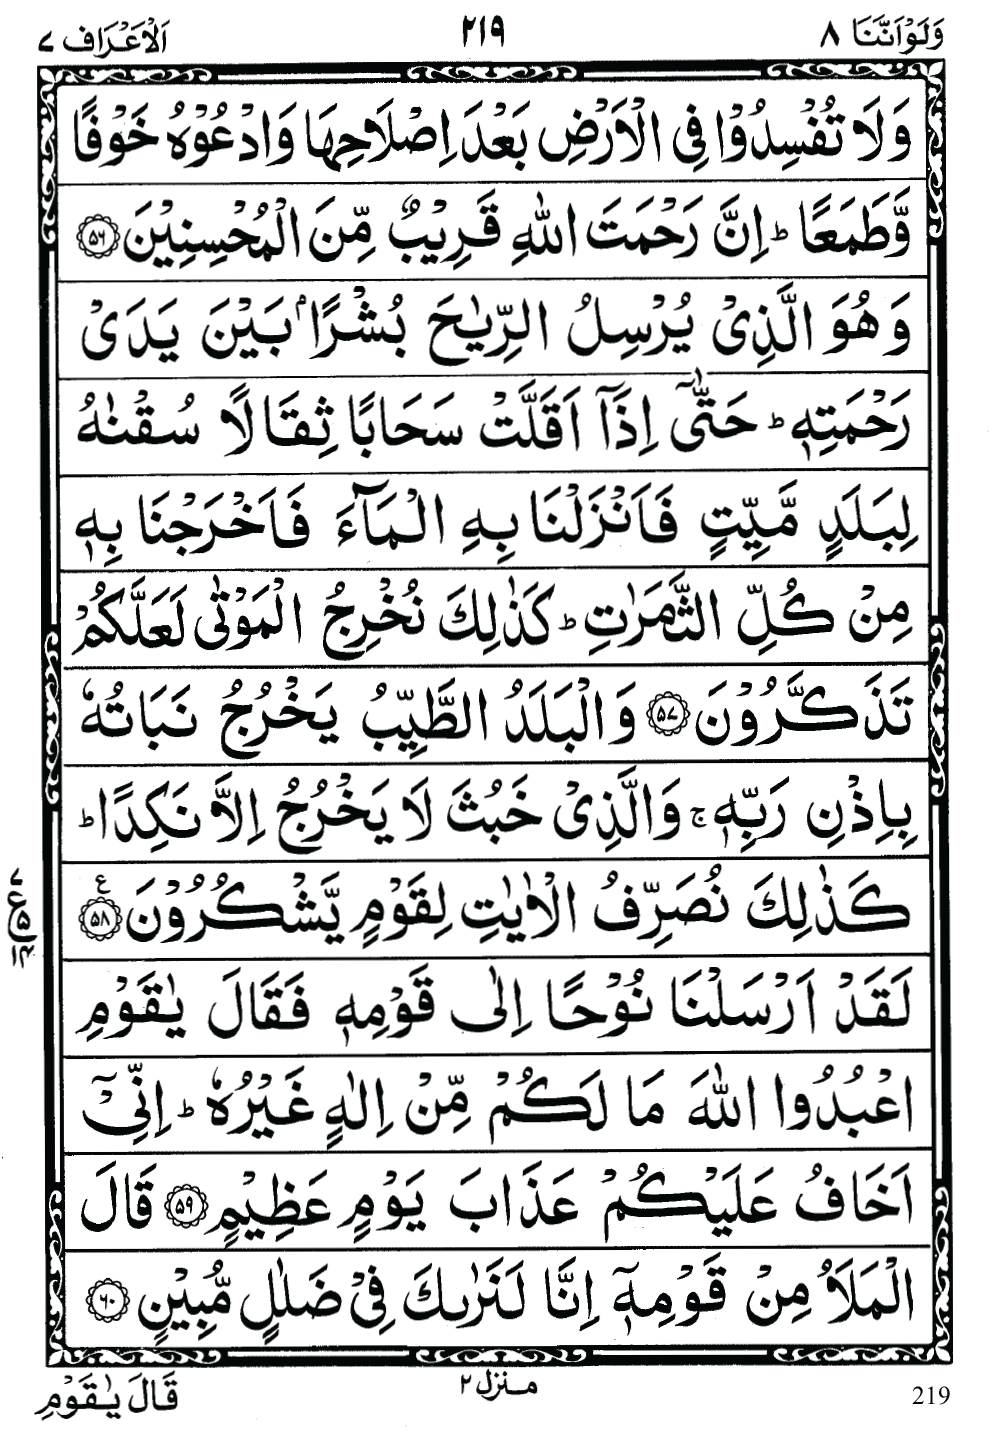 وَلَوْاَنَّنَا ٨ ٢١٩ اَلْاَعْرَاف ٧
وَلَا تُفْسِدُوْا فِی الْاَرْضِ بَعْدَ اِصْلَاحِهَا وَادْعُوْهُ خَوْفًا
وَّطَمَعًا ؕ اِنَّ رَحْمَتَ اللّٰهِ قَرِيْبٌ مِّنَ الْمُحْسِنِيْنَ ﴿۵۶﴾
وَهُوَ الَّذِیْ يُرْسِلُ الرِّيٰحَ بُشْرًاۢ بَيْنَ يَدَیْ
رَحْمَتِهٖ ؕ حَتّٰۤی اِذَاۤ اَقَلَّتْ سَحَابًا ثِقَالًا سُقْنٰهُ
لِبَلَدٍ مَّيِّتٍ فَاَنْزَلْنَا بِهِ الْمَآءَ فَاَخْرَجْنَا بِهٖ
مِنْ كُلِّ الثَّمَرٰتِ ؕ كَذٰلِكَ نُخْرِجُ الْمَوْتٰی لَعَلَّكُمْ
تَذَكَّرُوْنَ ﴿۵۷﴾ وَالْبَلَدُ الطَّيِّبُ يَخْرُجُ نَبَاتُهٗ
بِاِذْنِ رَبِّهٖ ۚ وَالَّذِیْ خَبُثَ لَا يَخْرُجُ اِلَّا نَكِدًا ؕ
كَذٰلِكَ نُصَرِّفُ الْاٰيٰتِ لِقَوْمٍ يَّشْكُرُوْنَ ﴿۵۸﴾ ع
لَقَدْ اَرْسَلْنَا نُوْحًا اِلٰی قَوْمِهٖ فَقَالَ يٰقَوْمِ
اعْبُدُوا اللّٰهَ مَا لَكُمْ مِّنْ اِلٰهٍ غَيْرُهٗ ؕ اِنِّیْۤ
اَخَافُ عَلَيْكُمْ عَذَابَ يَوْمٍ عَظِيْمٍ ﴿۵۹﴾ قَالَ
الْمَلَاُ مِنْ قَوْمِهٖۤ اِنَّا لَنَرٰىكَ فِیْ ضَلٰلٍ مُّبِيْنٍ ﴿۶۰﴾
قَالَ يٰقَوْمِ منزل ٢ 219